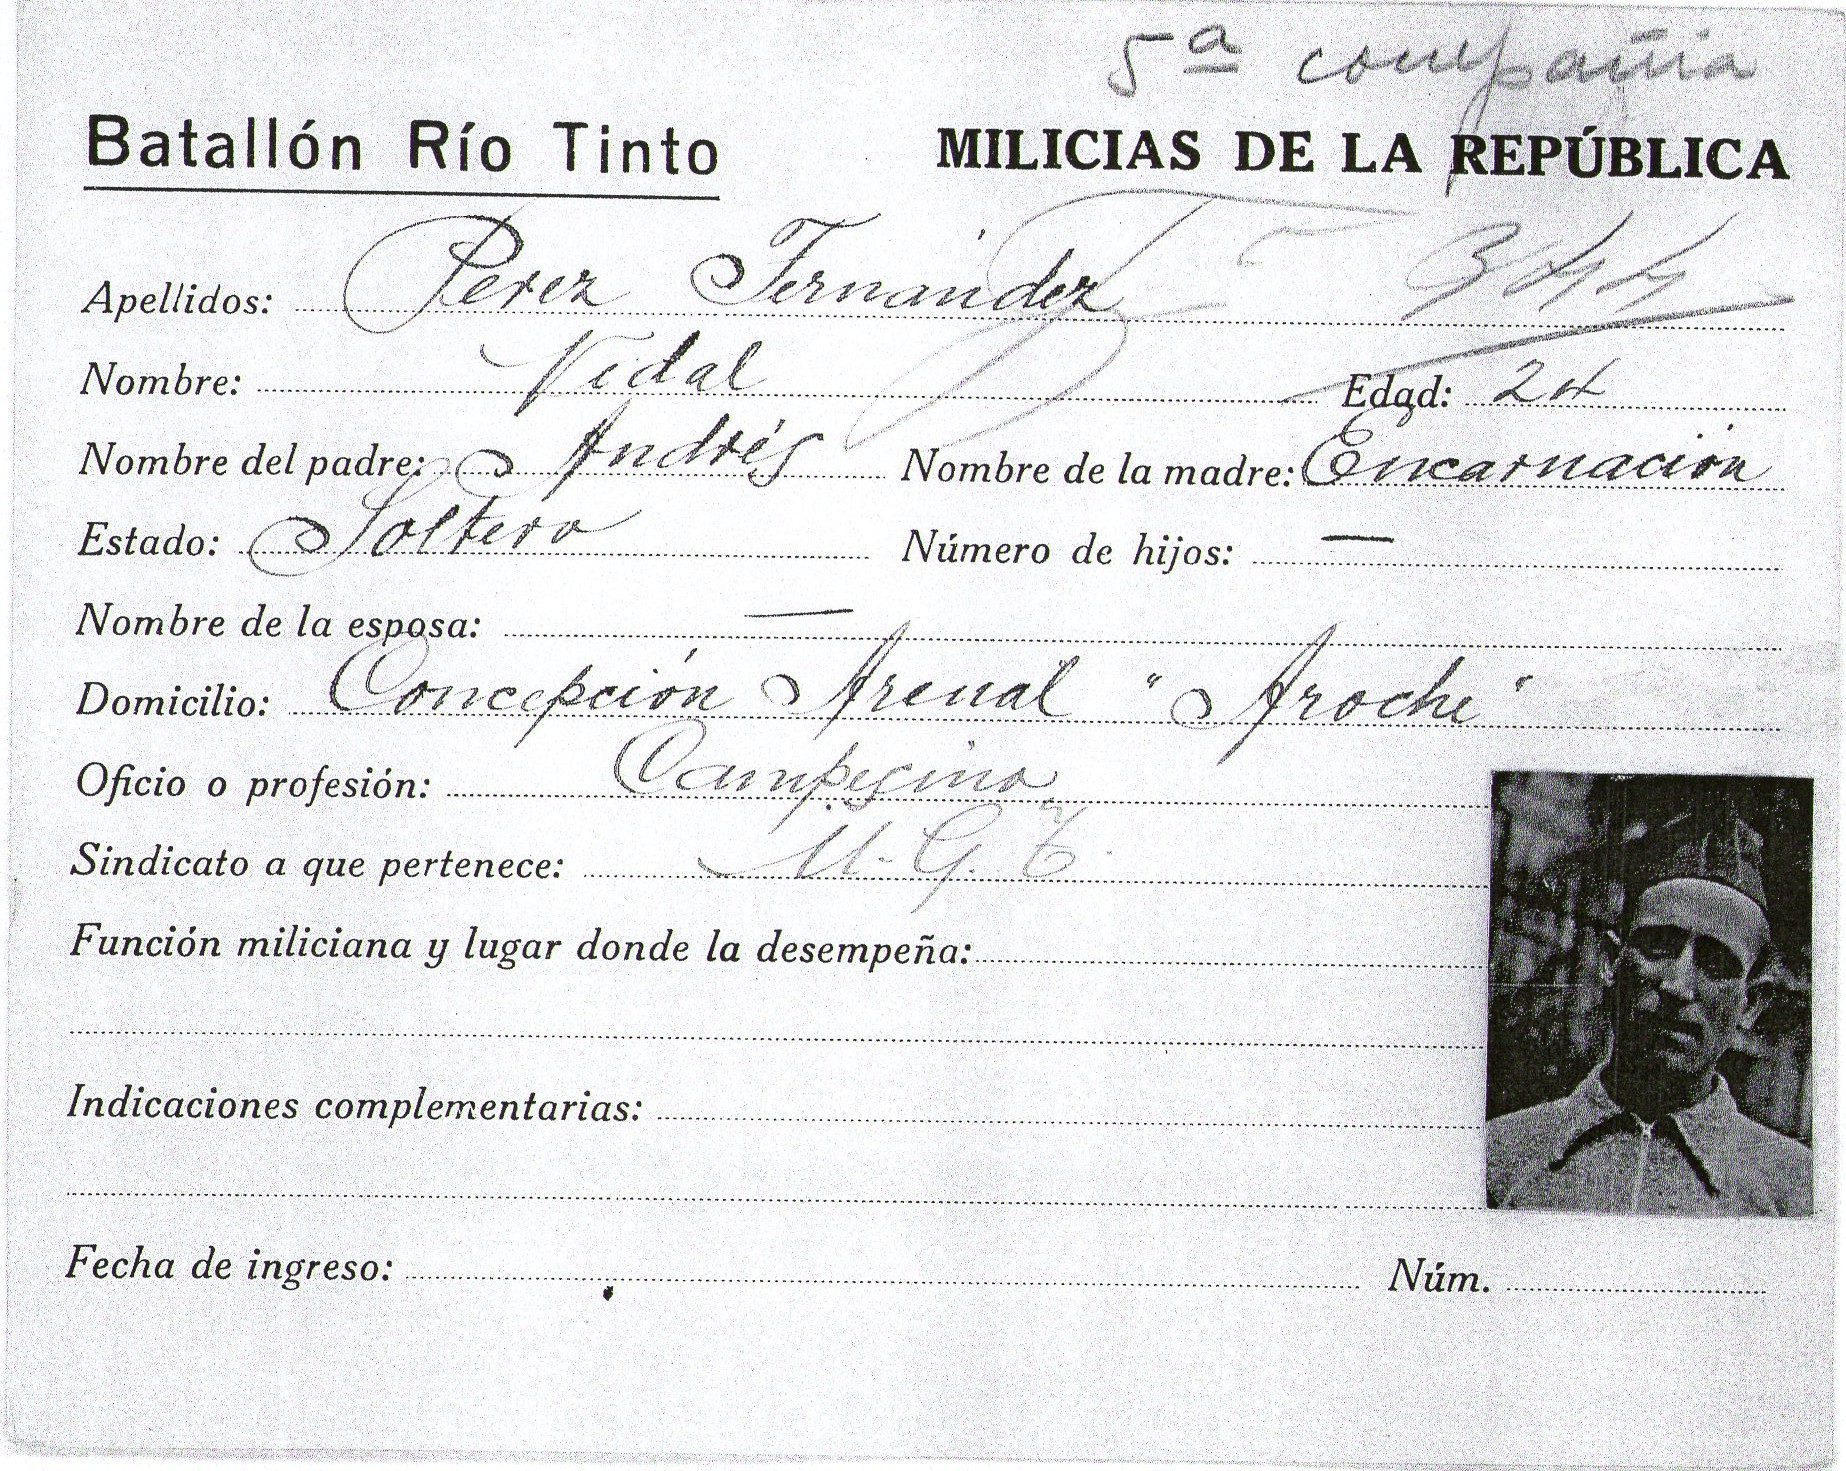 5ª compañia
Batallón Río Tinto MILICIAS DE LA REPÚBLICA
Apellidos: Perez Fernández
Nombre: Vidal Edad: 24
Nombre del padre: Andrés Nombre de la madre: Encarnación
Estado: Soltero Número de hijos: —
Nombre de la esposa: —
Domicilio: Concepción Arenal "Aroche"
Oficio o profesión: Campesino
Sindicato a que pertenece: U.G.T.
Función miliciana y lugar donde la desempeña:
Indicaciones complementarias:
Fecha de ingreso: Núm.